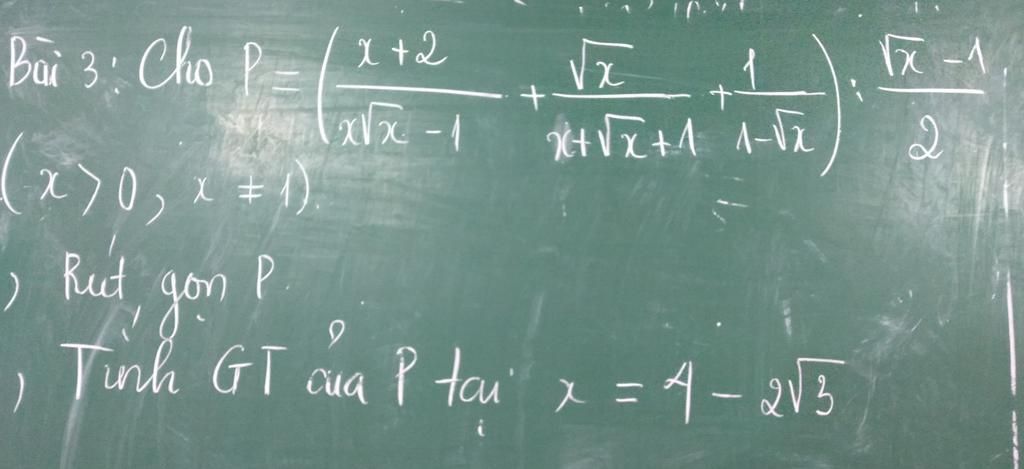 Bài 3: Cho P = ( (x+2)/(x√x − 1) + √x/(x+√x+1) + 1/(1−√x) ) : (√x − 1)/2
(x > 0, x ≠ 1).
) Rút gọn P.
) Tính GT của P tại x = 4 − 2√3